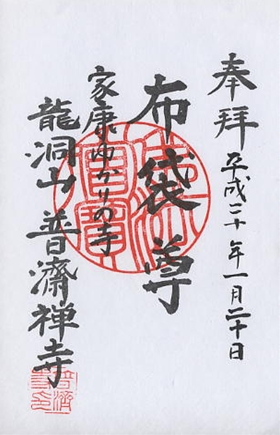 奉拝 平成二十年一月二十日
布袋尊
家康ゆかりの寺
龍洞山普濟禅寺